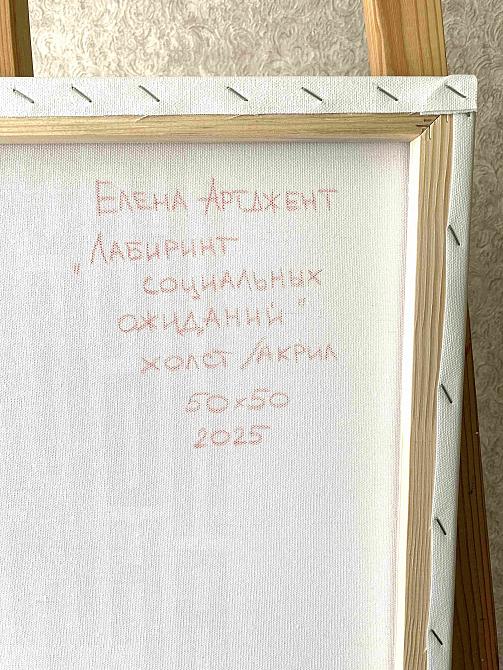 Елена Артджент
"Лабиринт
социальных
ожиданий"
холст/акрил
50×50
2025